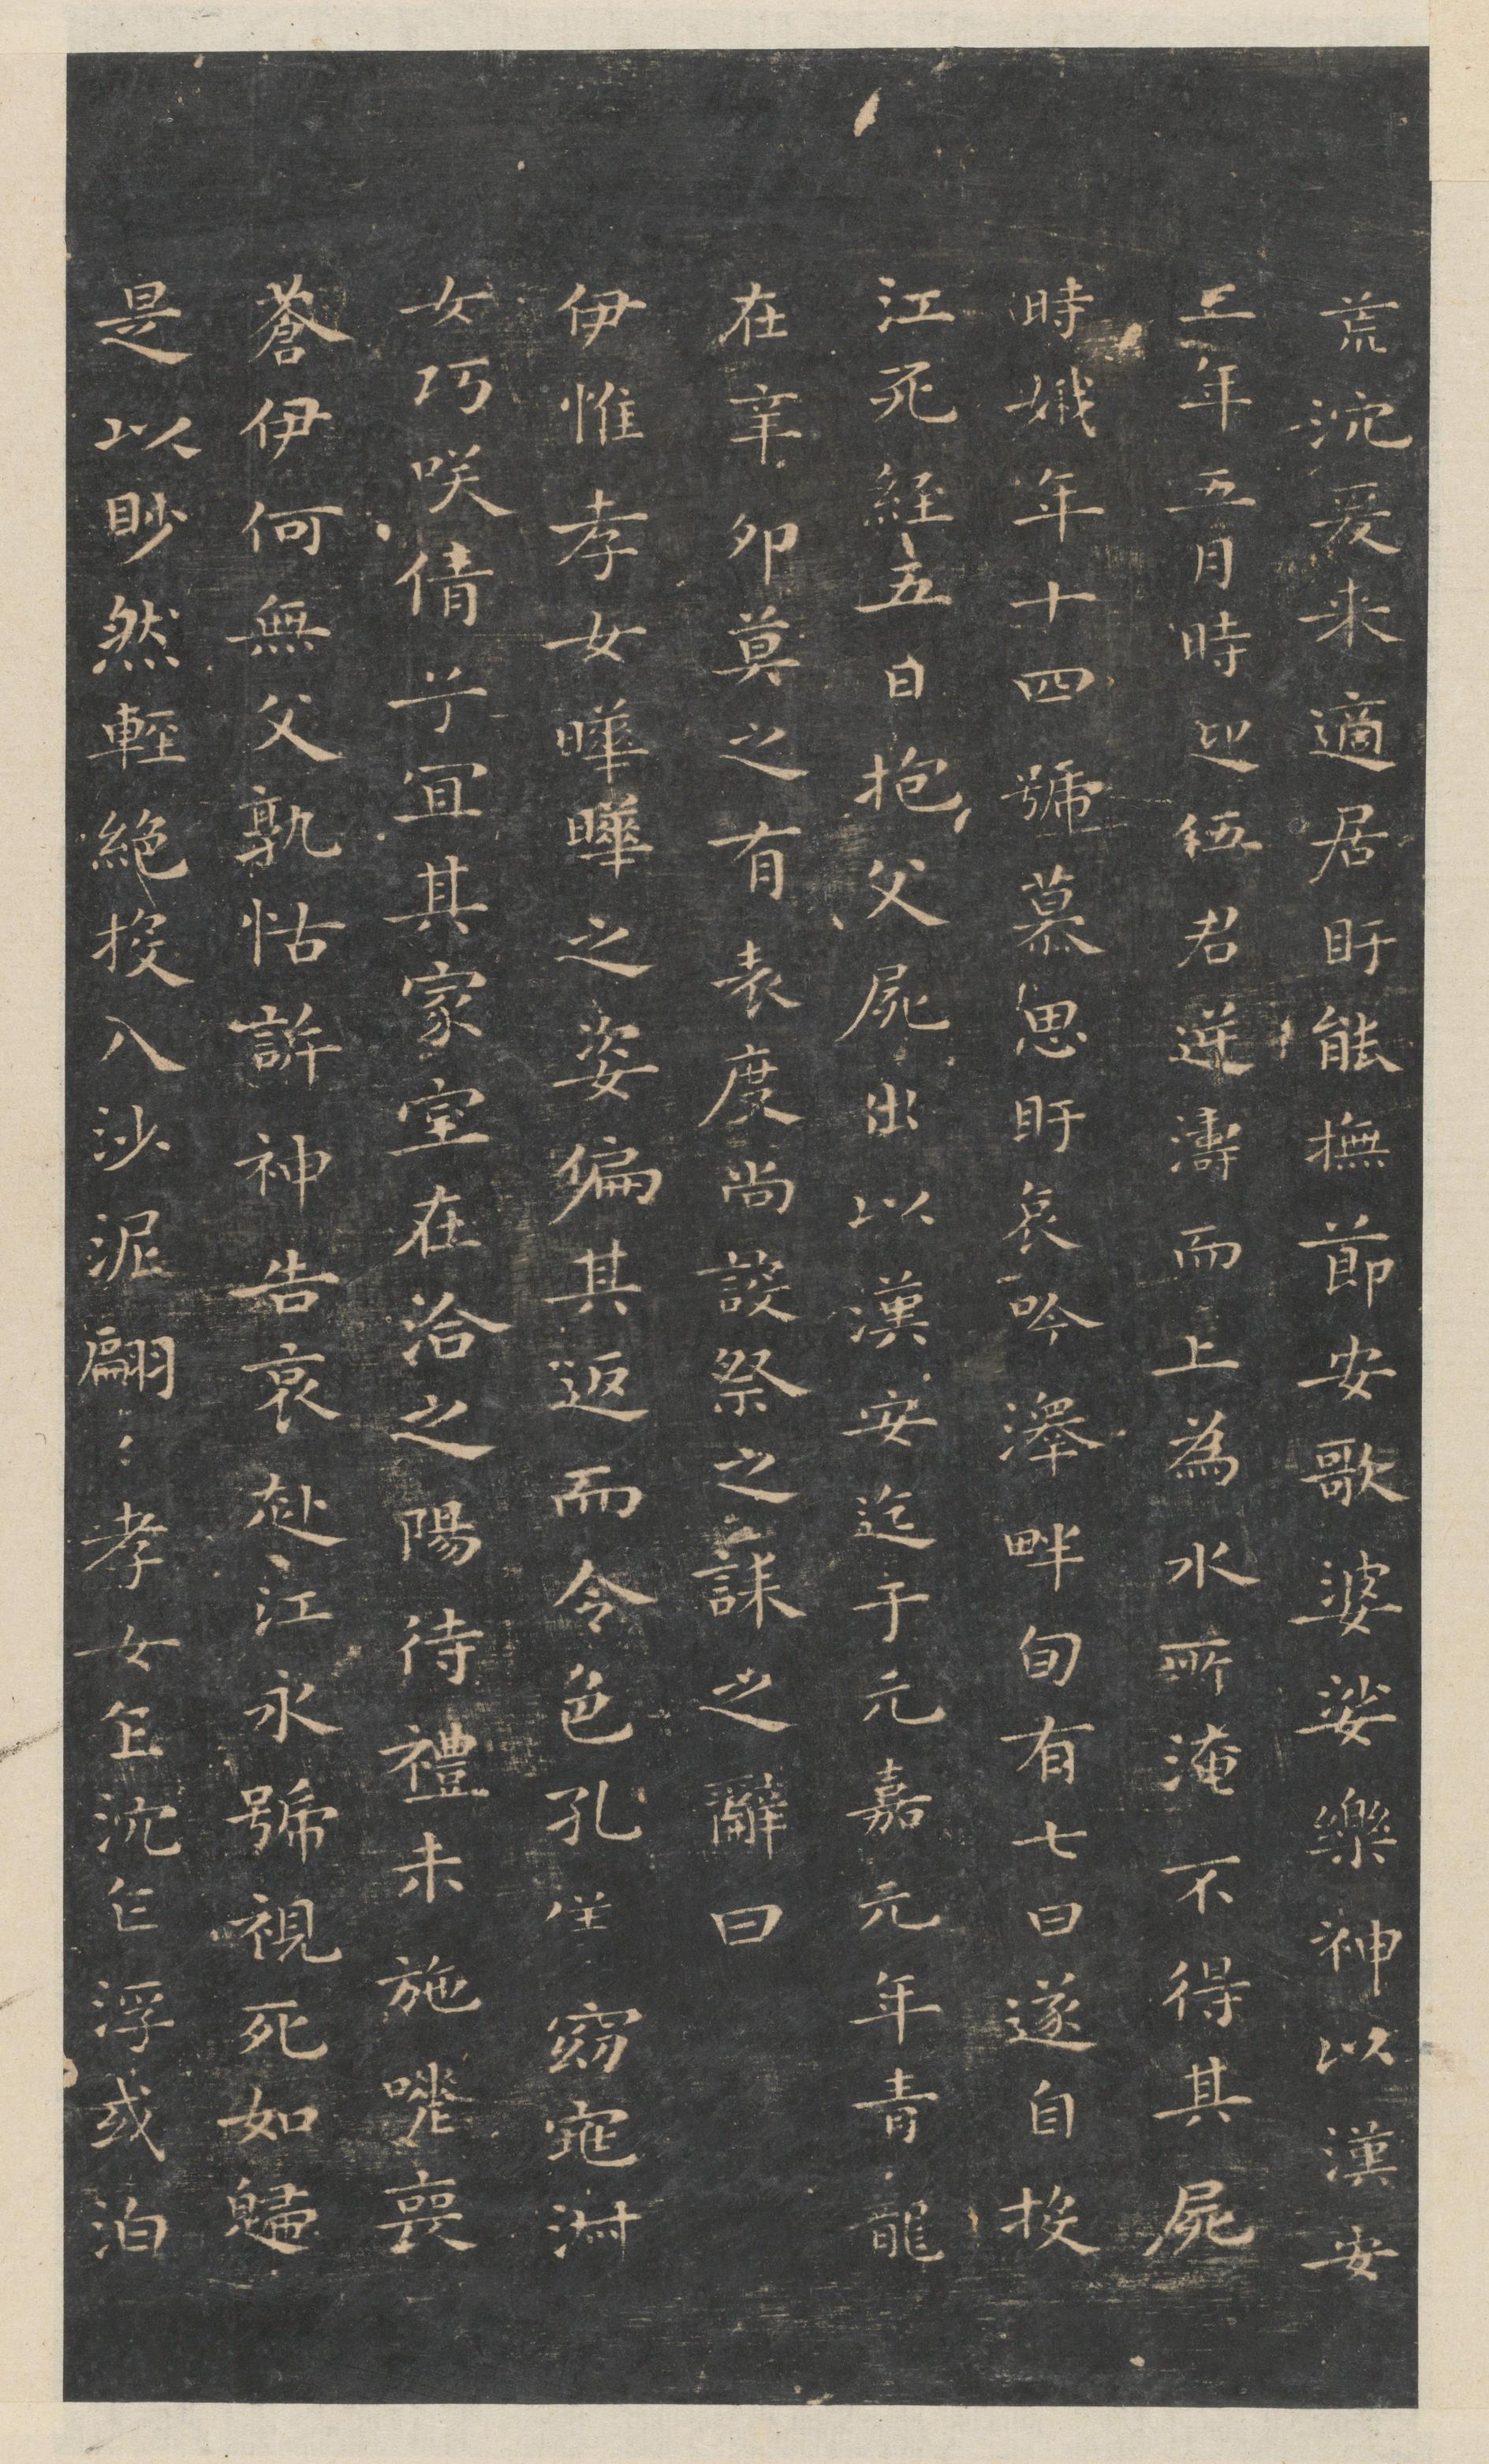 荒沈爰来適居盱能撫節安歌婆娑樂神以漢安
二年五月時迎伍君逆濤而上為水所淹不得其屍
時娥年十四號慕思盱哀吟澤畔旬有七日遂自投
江死經五日抱父屍出以漢安迄于元嘉元年青龍
在辛卯莫之有表度尚設祭之誄之辭曰
伊惟孝女曄曄之姿偏其返而令色孔儀窈窕淑
女巧咲倩兮宜其家室在洽之陽待禮未施嗟喪
蒼伊何無父孰怙訴神告哀赴江永號視死如歸
是以眇然輕絕投入沙泥翩〻孝女乍沈乍浮或泊